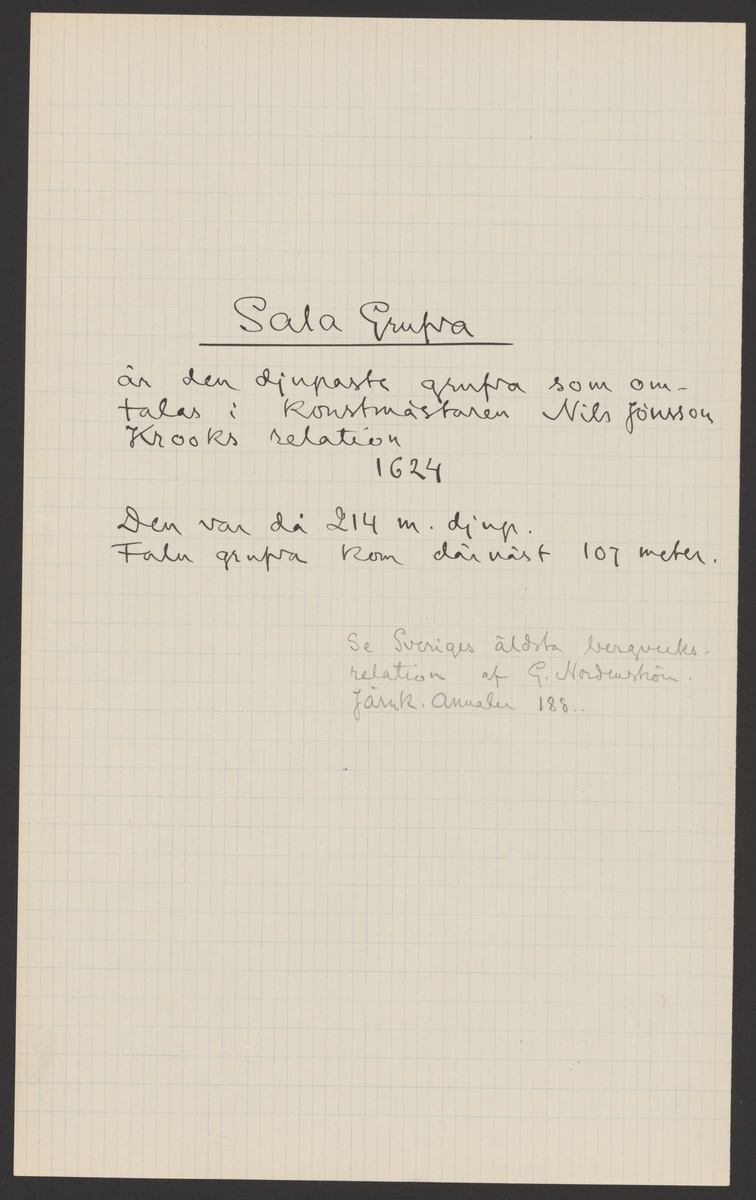 Sala Grufva
är den djupaste grufva som om-
talas i konstmästaren Nils Jönsson
Krooks relation
1624
Den var då 214 m. djup.
Falu grufva kom därnäst 107 meter.
Se Sveriges äldsta bergverks-
relation af G. Nordenström.
Järnk. Annaler 188..